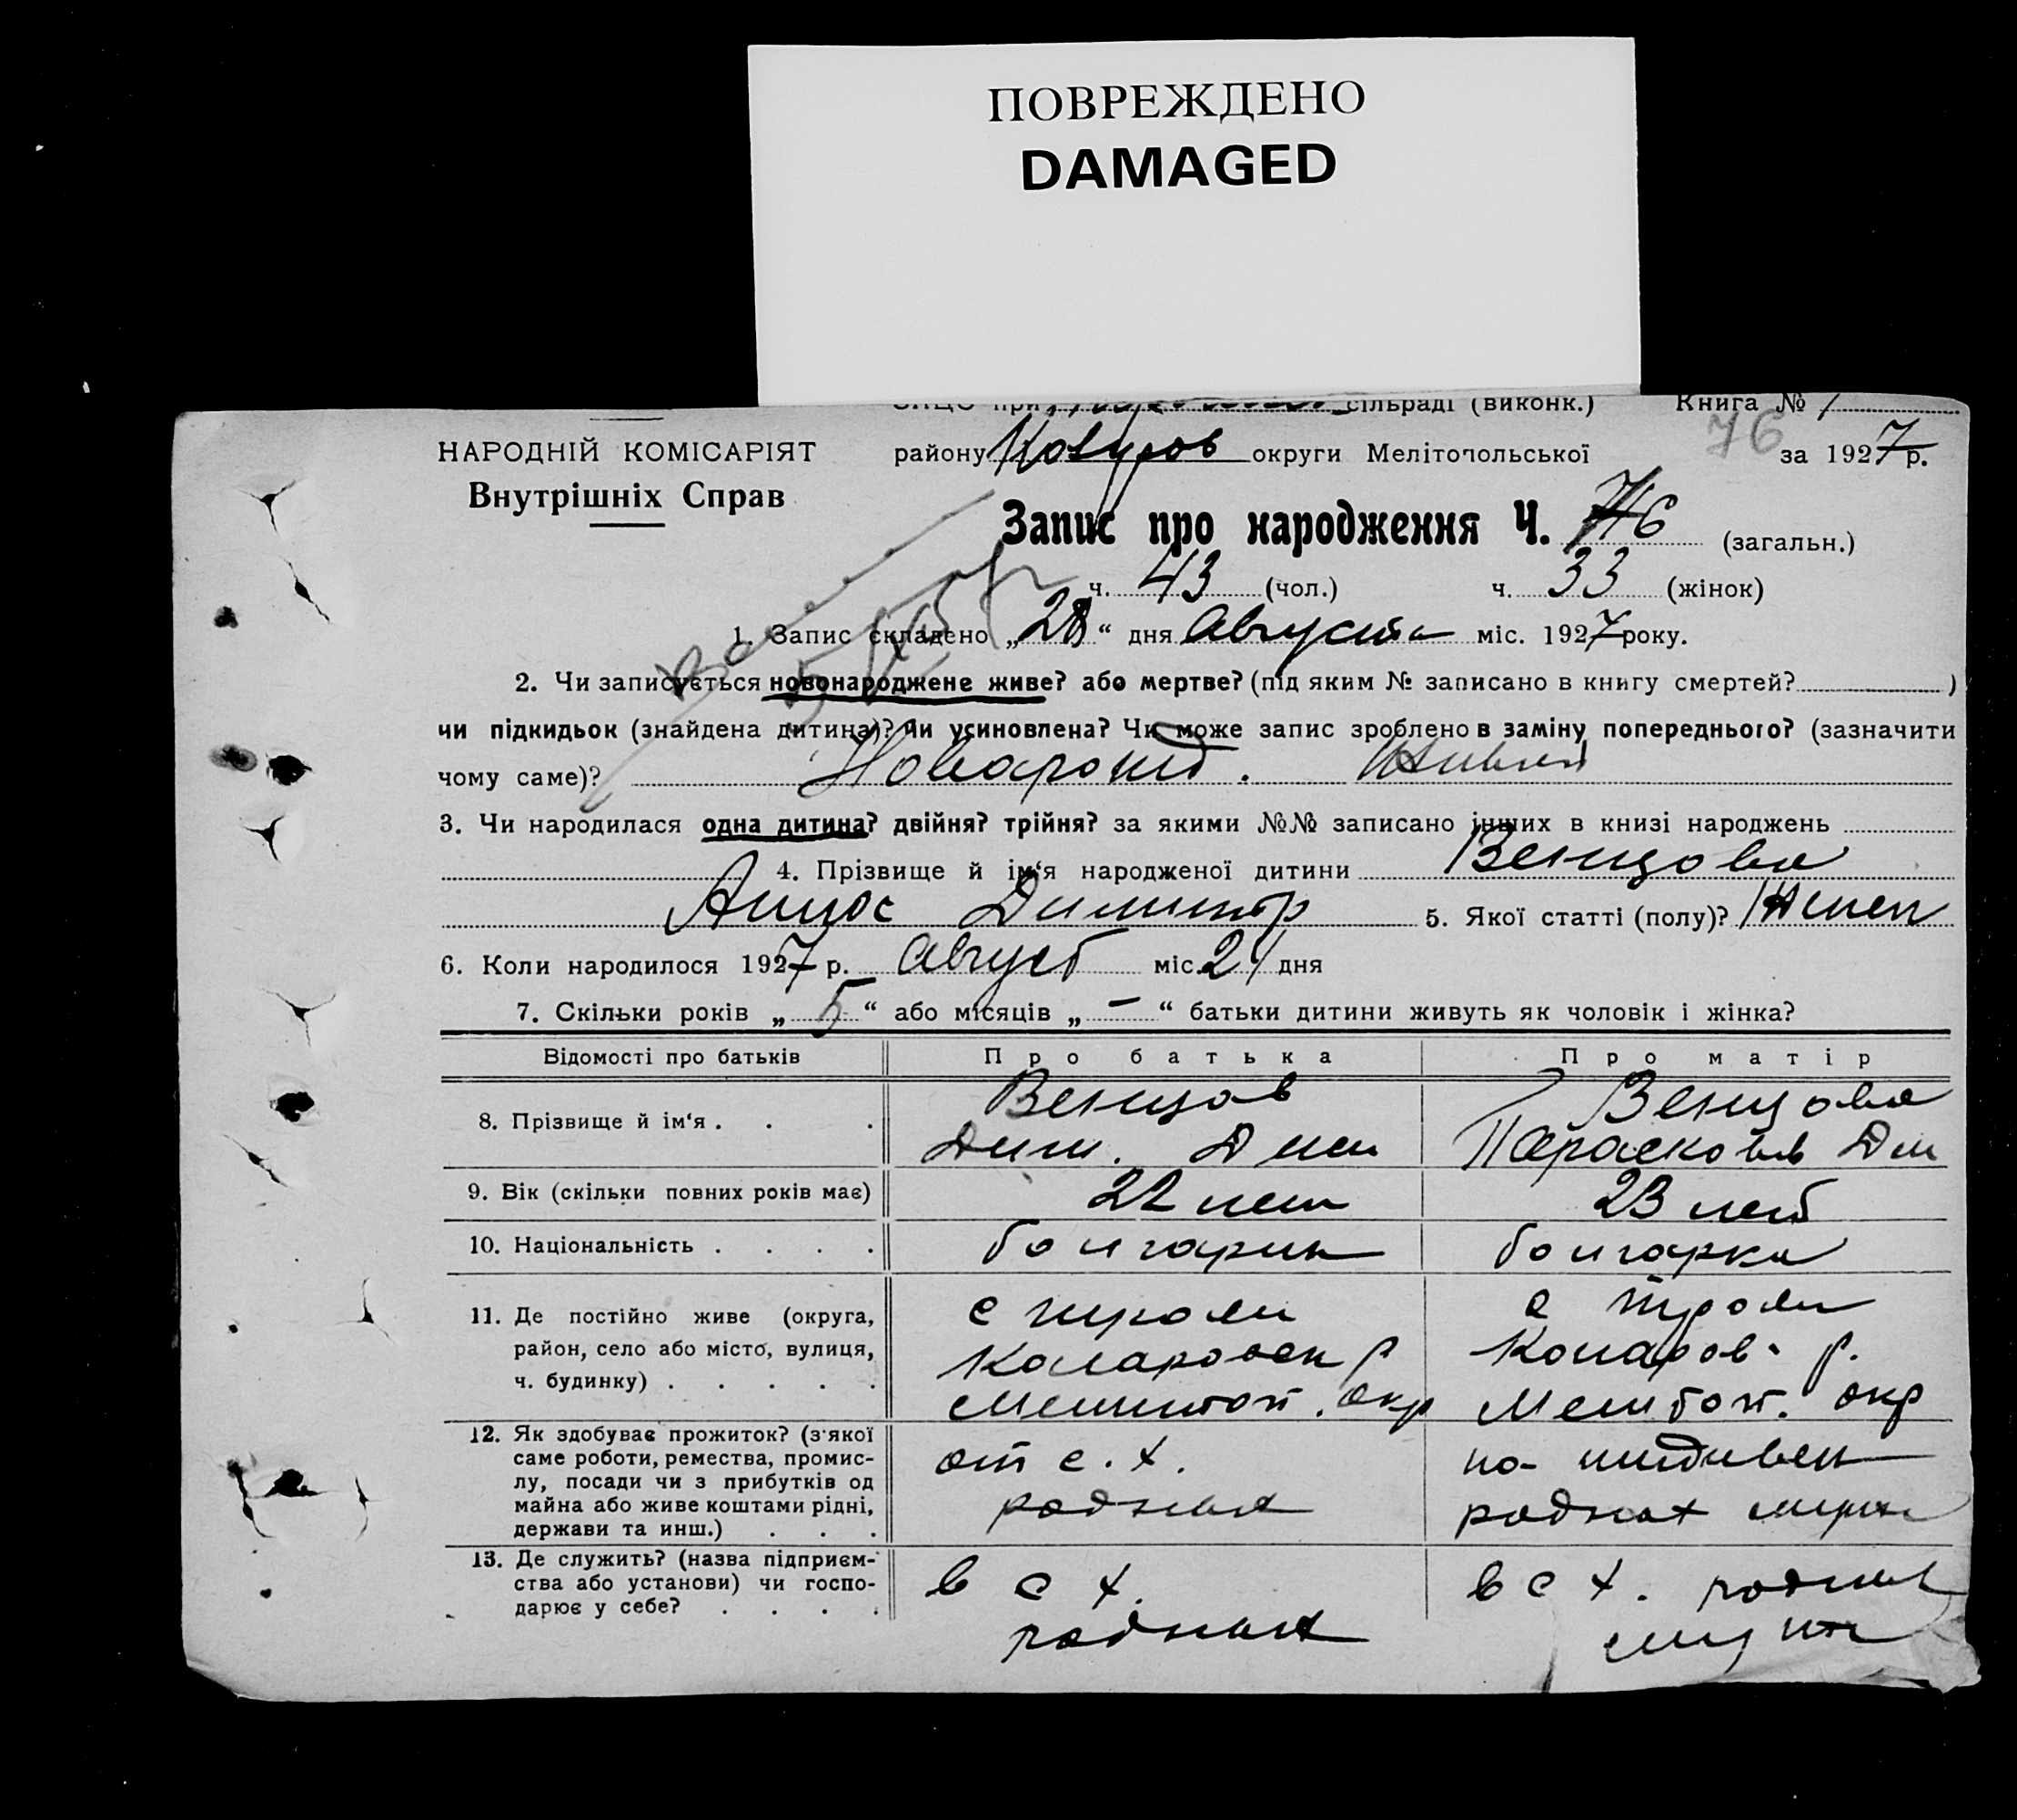 ПОВРЕЖДЕНО
DAMAGED
при сільраді (виконк.) Книга № 1
НАРОДНІЙ КОМІСАРІЯТ
району округи Мелітопольської 76 за 1927 р.
Внутрішніх Справ
Запис про народження Ч. 76 (загальн.)
ч. 43 (чол.) ч. 33 (жінок)
1. Запис складено „28“ дня Августа міс. 1927 року.
2. Чи записується новонароджене живе? або мертве? (під яким № записано в книгу смертей? )
чи підкидьок (знайдена дитина)? Чи усиновлена? Чи може запис зроблено в заміну попереднього? (зазначити
чому саме)? Новарожд.
3. Чи народилася одна дитина? двійня? трійня? за якими №№ записано інших в книзі народжень
4. Прізвище й ім‘я народженої дитини Венцова
Димитр 5. Якої статті (полу)? Женск
6. Коли народилося 1927 р. Август міс. 24 дня
7. Скільки років „5“ або місяців „—“ батьки дитини живуть як чоловік і жінка?
Відомості про батьків Про батька Про матір
8. Прізвище й ім‘я . . . Венцов Венцова
Дим. Дим Парасковия Дм
9. Вік (скільки повних років має) 22 лет 23 лет
10. Національність . . . . болгарин болгарка
11. Де постійно живе (округа, с Трояни с Трояни
район, село або місто, вулиця, Коларовск р Колар ов. р.
ч. будинку) . . . . . Мелитоп. окр Мелитоп. окр
12. Як здобуває прожиток? (з'якої
саме роботи, ремества, промис- от с. х. на иждивен
лу, посади чи з прибутків од
майна або живе коштами рідні, родных родных мужа
держави та инш.) . . .
13. Де служить? (назва підприєм-
ства або установи) чи госпо- в с х. в с х. родных
дарює у себе? . . . . родных мужа